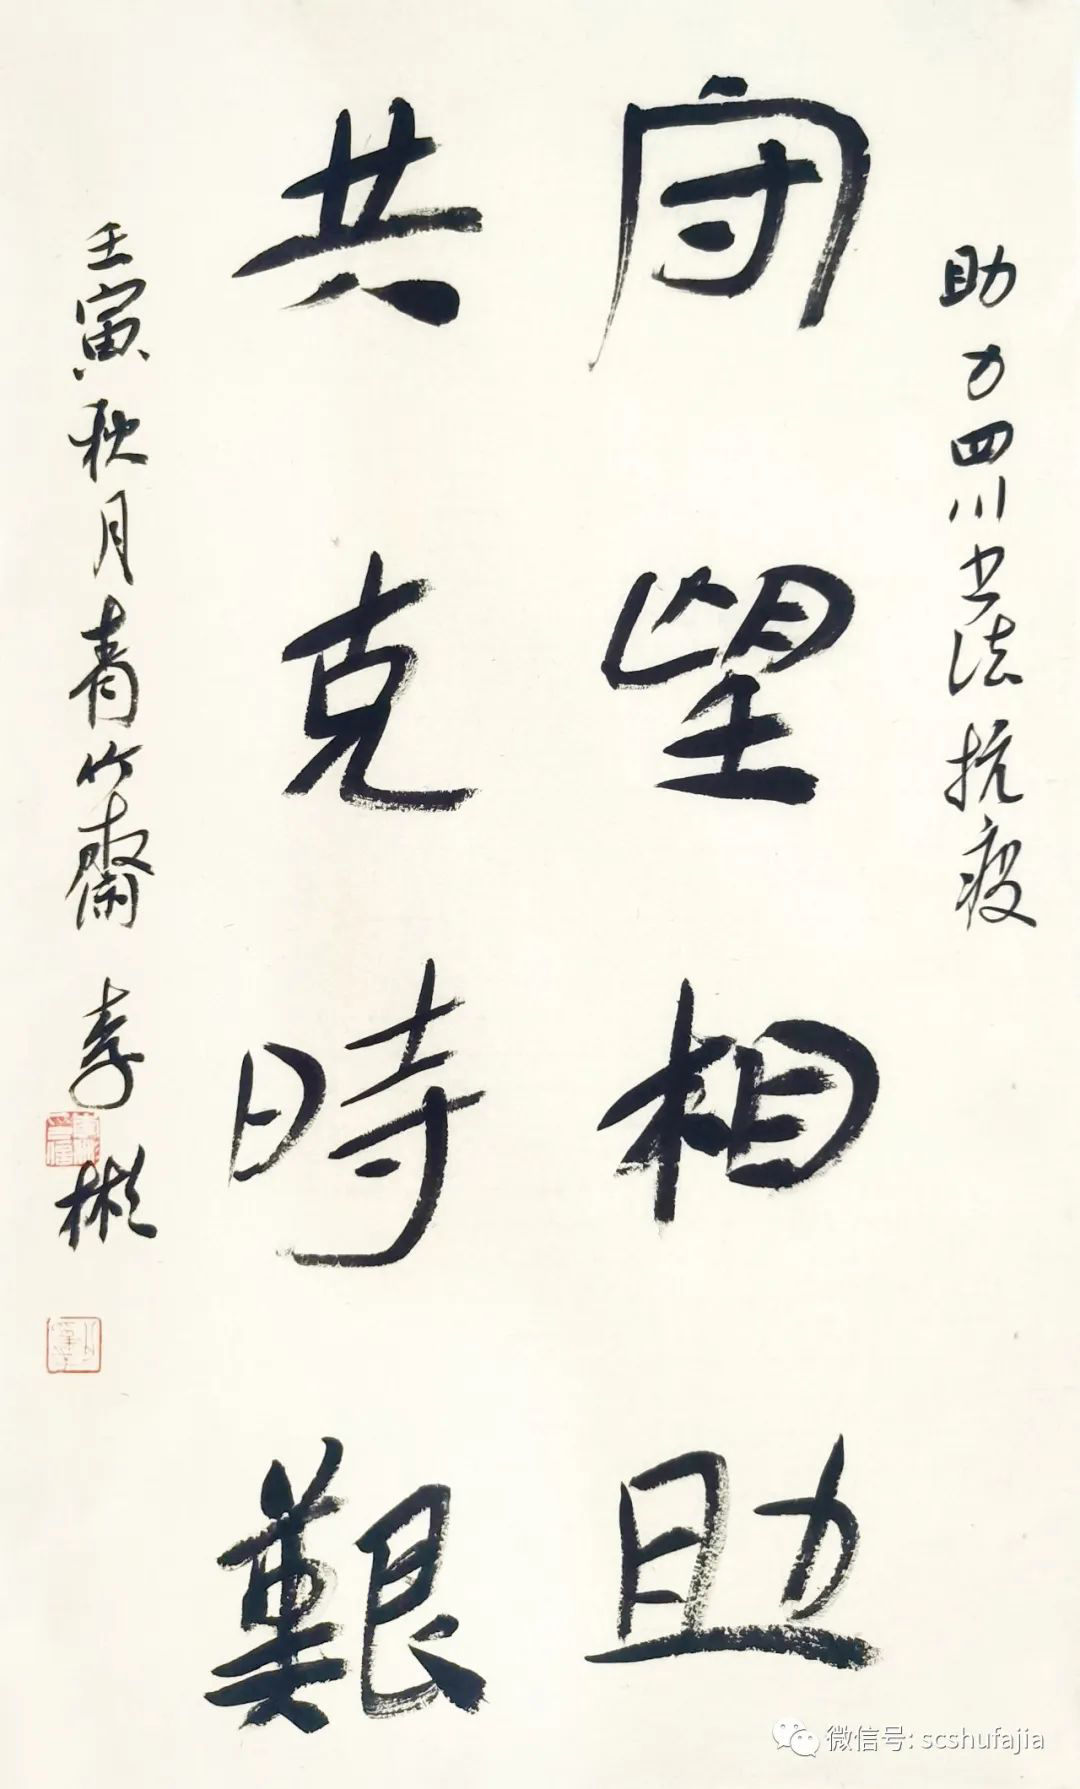 助力四川书法抗疫
守望相助
共克時艱
壬寅秋月青竹齋李彬
微信号: scshufajia